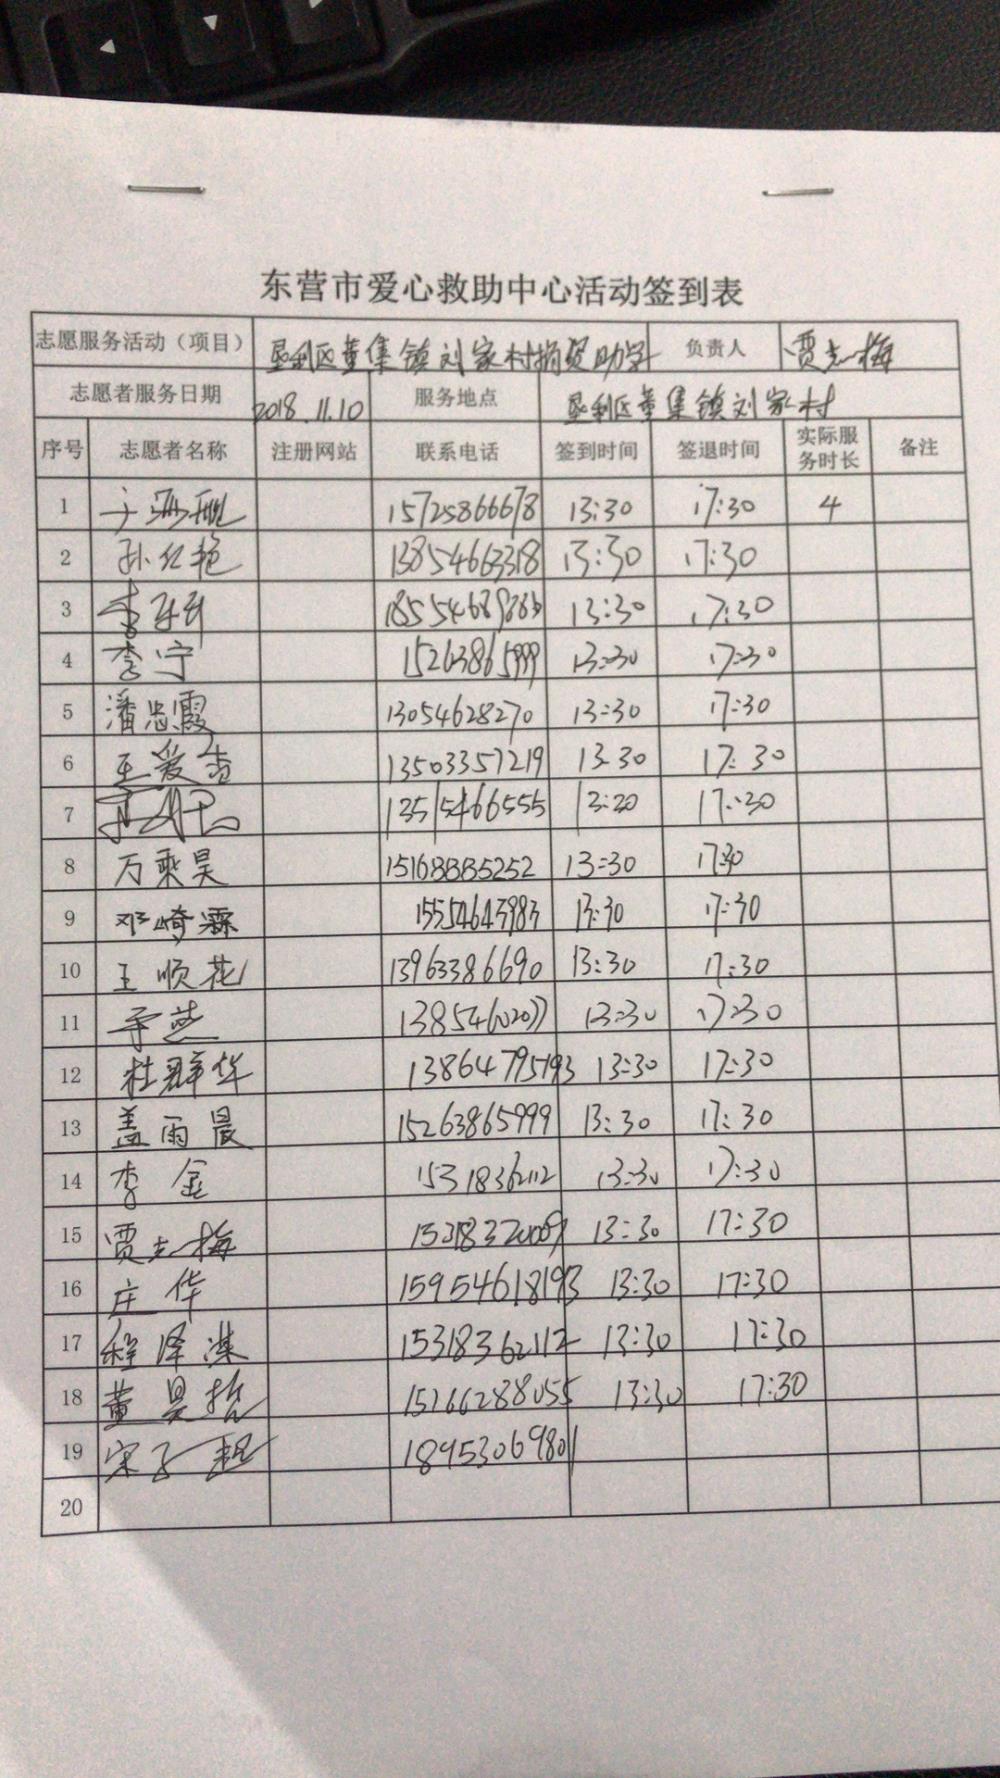 东营市爱心救助中心活动签到表
志愿服务活动（项目） 垦利区董集镇刘家村捐资助学 负责人 贾志梅
志愿者服务日期 2018.11.10 服务地点 垦利区董集镇刘家村
序号 志愿者名称 注册网站 联系电话 签到时间 签退时间 实际服务时长 备注
1 15725866678 13:30 17:30 4
2 孙红艳 13854663318 13:30 17:30
3 13:30 17:30
4 李宁 15263865999 13:30 17:30
5 潘忠霞 13054628270 13:30 17:30
6 王爱香 13503357219 13:30 17:30
7 13515466555 13:30 17:30
8 万乘昊 15168885252 13:30 17:30
9 邓崎霖 15554643983 13:30 17:30
10 王顺花 13963386690 13:30 17:30
11 13:30 17:30
12 杜群华 13864795193 13:30 17:30
13 盖雨晨 15263865999 13:30 17:30
14 李金 15318362112 13:30 17:30
15 贾志梅 13:30 17:30
16 庄华 15954618193 13:30 17:30
17 程泽滢 15318362112 13:30 17:30
18 黄昊哲 15266288055 13:30 17:30
19 宋子超 18953069801
20